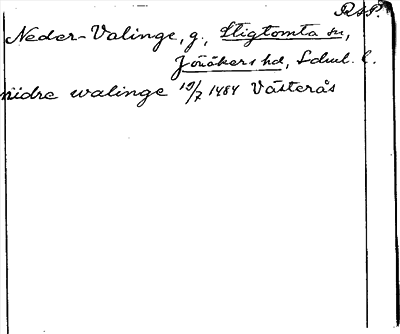 R A P.
Neder-Valinge, g., Stigtomta sn,
Jönåkers hd, Södml. l.
nidre walinge 19/7 1484 Västerås